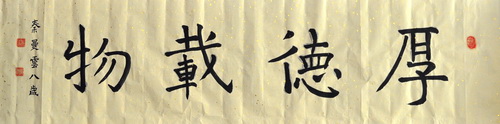 厚德載物
秦曼雪八歲